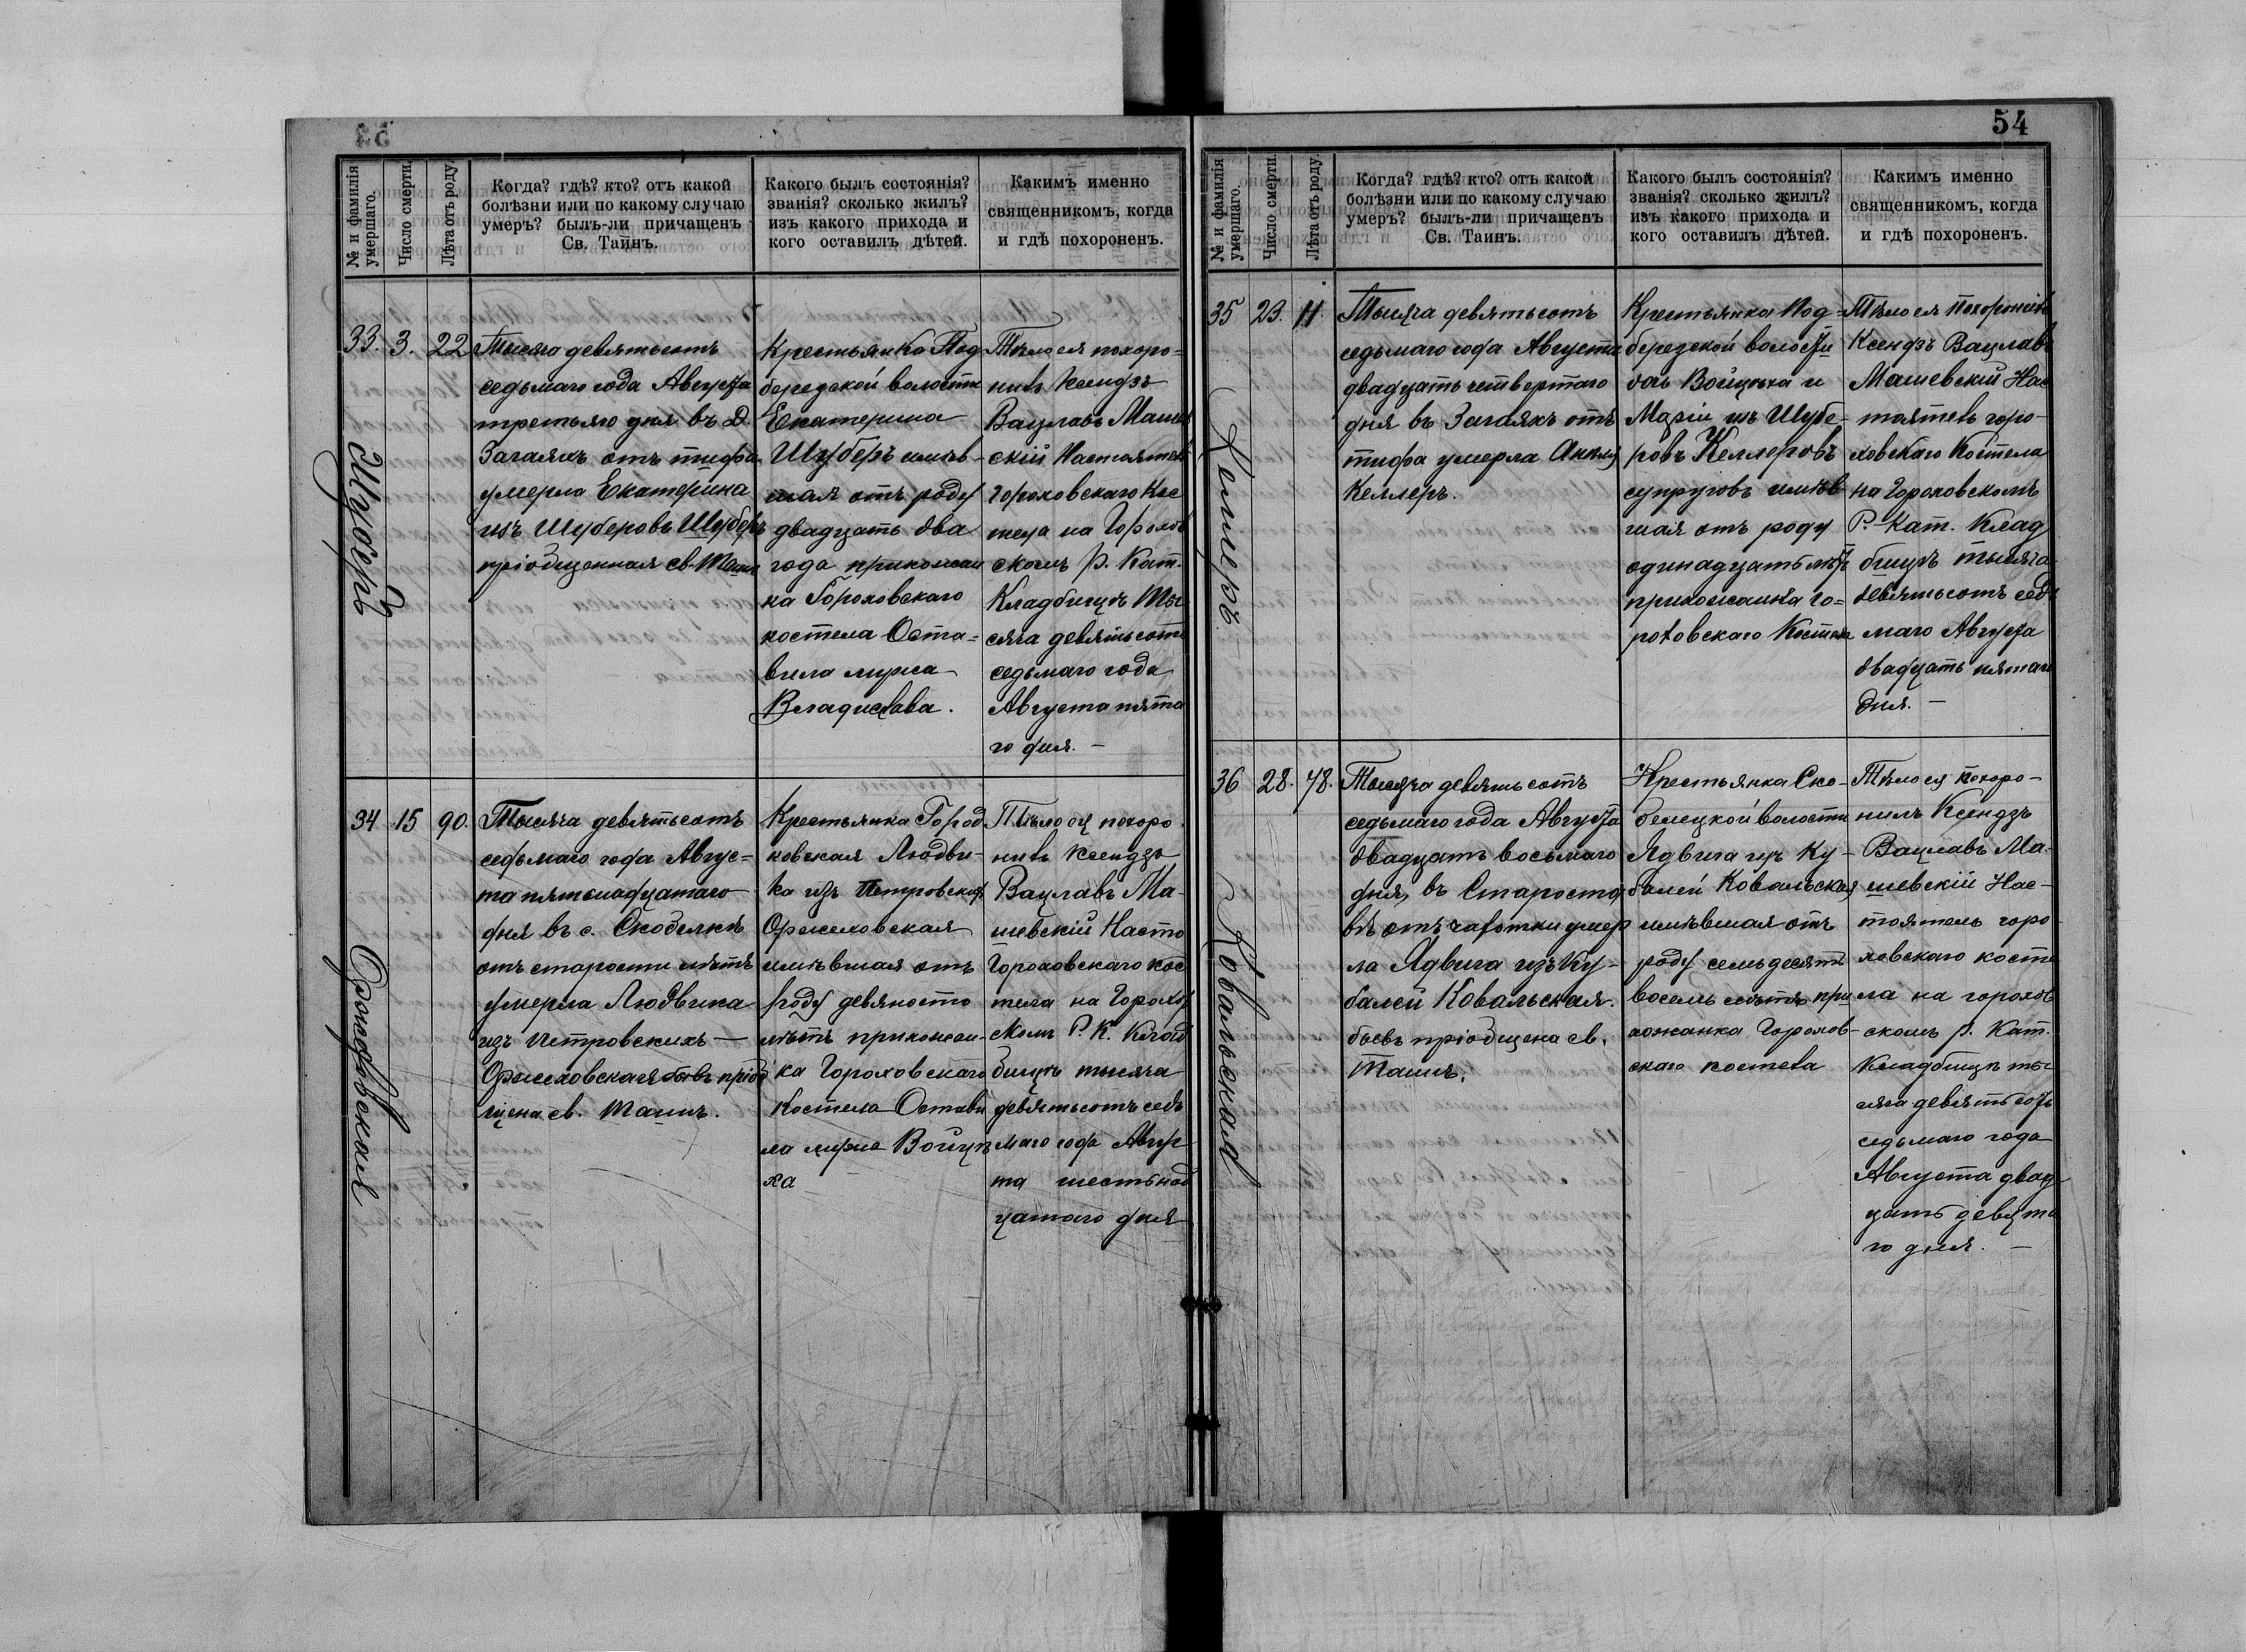 54
№ и фамилія умершаго.
Число смерти.
Лѣта отъ роду.
Когда? гдѣ? кто? отъ какой
болѣзни или по какому случаю
умеръ? былъ-ли причащенъ
Св. Таинъ.
Какого былъ состоянія?
званія? сколько жилъ?
изъ какого прихода и
кого оставилъ дѣтей.
Какимъ именно
священникомъ, когда
и гдѣ похороненъ.
33.
Шуберъ
3.
22
Тысяча девятьсотъ
седьмаго года Августа
третьяго дня въ д.
Загаяхъ отъ тифа
умерла Екатерина
изъ Шуберовъ Шуберъ
пріобщенная св. Таинъ
Крестьянка Под-
березской волости
Екатерина
Шуберъ имѣв-
шая отъ роду
двадцать два
года прихожан
ка Гороховскаго
костела Оста-
вила мужа
Владислава.
Тѣло ея похоро-
нилъ Ксендзъ
Вацлавъ Машев
скій Настоятель
Гороховскаго Кос
тела на Горохов
скомъ р. Кат.
Кладбищѣ Ты-
сяча девятьсотъ
седьмаго года
Августа пята
го дня. —
34
Оржеховская
15
90.
Тысяча девятьсотъ
седьмаго года Авгус-
та пятнадцатаго
дня въ с. Скобелкѣ
отъ старости лѣтъ
умерла Людвика
изъ Петровскихъ —
Оржеховская бывъ пріоб
щена св. Таинъ.
Крестьянка Город
ковская Людви-
ка изъ Петровскихъ
Оржеховская
имѣвшая отъ
роду девяносто
лѣтъ прихожан-
ка Гороховскаго
Костела Остави
ла мужа Войцѣ
ха
Тѣло ея похоро
нилъ Ксендзъ
Вацлавъ Ма-
шевскій Насто
Гороховскаго кос
тела на Горохов
скомъ Р. К. Клад
бищѣ тысяча
девятьсотъ седь
маго года Авгус
та шестьнад
цатаго дня
№ и фамилія умершаго.
Число смерти.
Лѣта отъ роду.
Когда? гдѣ? кто? отъ какой
болѣзни или по какому случаю
умеръ? былъ-ли причащенъ
Св. Таинъ.
Какого былъ состоянія?
званія? сколько жилъ?
изъ какого прихода и
кого оставилъ дѣтей.
Какимъ именно
священникомъ, когда
и гдѣ похороненъ.
35
Келлеръ
23.
11.
Тысяча девятьсотъ
седьмаго года Августа
двадцать четвертаго
дня въ Загаяхъ отъ
тифа умерла
Келлеръ.
Крестьянка Под-
березской волости
дочь Войцѣха и
Маріи изъ Шубе-
ровъ Келлеровъ
супруговъ имѣв
шая отъ роду
одинадцать лѣтъ
прихожанка го-
роховскаго Костела
Тѣло ея похоронилъ
Ксендзъ Вацлавъ
Машевскій Нас
тоятель горо-
ховскаго Костела
на Гороховскомъ
Р. Кат. Клад
бищѣ тысяча
девятьсотъ седь
маго Августа
двадцать пятаго
дня. —
36
Ковальская
28.
78.
Тысяча девятьсотъ
седьмаго года Августа
двадцать восьмаго
дня, въ Старостав
вѣ отъ чахотки умер
ла Ядвига изъ Ку-
балей Ковальская.
бывъ пріобщена св.
Таинъ.
Крестьянка Ско-
белецкой волости
Ядвига изъ Ку-
балей Ковальская
имѣвшая отъ
роду семьдесятъ
восемь лѣтъ при
хожанка Горохов-
скаго костела
Тѣло ея похоро-
нилъ Ксендзъ
Вацлавъ Ма-
шевскій Нас-
тоятель горо
ховскаго косте
ла на горохов
скомъ р. Кат.
Кладбищѣ ты-
сяча девятьсотъ
седьмаго года
Августа двад
цать девята
го дня. —